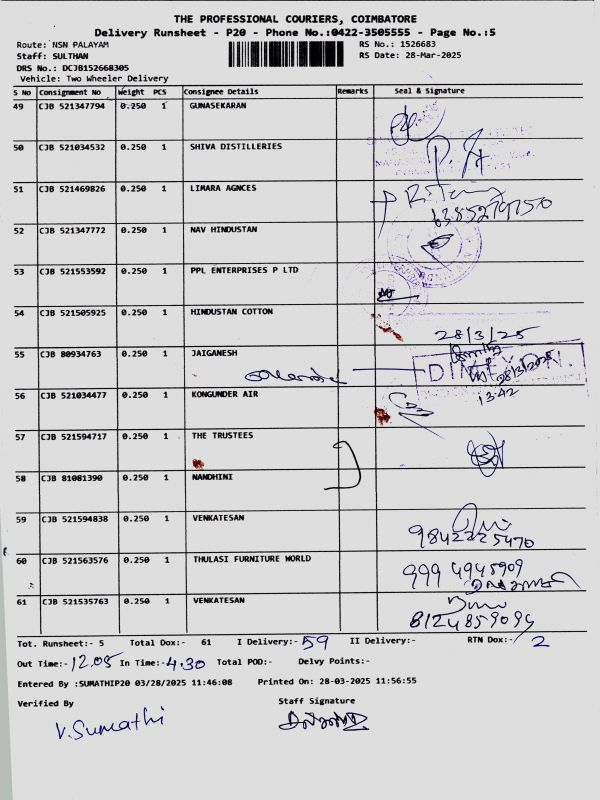 THE PROFESSIONAL COURIERS, COIMBATORE
Delivery Runsheet - P20 - Phone No.:0422-3505555 - Page No.:5
Route: NSN PALAYAM
RS No.: 1526683
Staff: SULTHAN
RS Date: 28-Mar-2025
DRS No.: DCJB152668305
Vehicle: Two Wheeler Delivery
S No Consignment No Weight PCS Consignee Details Remarks Seal & Signature
49 CJB 521347794 0.250 1 GUNASEKARAN
50 CJB 521034532 0.250 1 SHIVA DISTILLERIES
51 CJB 521469826 0.250 1 LIMARA AGNCES
6385279750
52 CJB 521347772 0.250 1 NAV HINDUSTAN
53 CJB 521553592 0.250 1 PPL ENTERPRISES P LTD
54 CJB 521505925 0.250 1 HINDUSTAN COTTON
28/3/25
55 CJB 80934763 0.250 1 JAIGANESH
28/3/2025
13:42
56 CJB 521034477 0.250 1 KONGUNDER AIR
57 CJB 521594717 0.250 1 THE TRUSTEES
58 CJB 81081390 0.250 1 NANDHINI
59 CJB 521594838 0.250 1 VENKATESAN
9842225470
60 CJB 521563576 0.250 1 THULASI FURNITURE WORLD
999 4945909
61 CJB 521535763 0.250 1 VENKATESAN
8124859094
Tot. Runsheet:- 5 Total Dox:- 61 I Delivery:- 59 II Delivery:- RTN Dox:- 2
Out Time:- 12.05 In Time:- 4.30 Total POD:- Delvy Points:-
Entered By :SUMATHIP20 03/28/2025 11:46:08 Printed On: 28-03-2025 11:56:55
Verified By Staff Signature
V. Sumathi